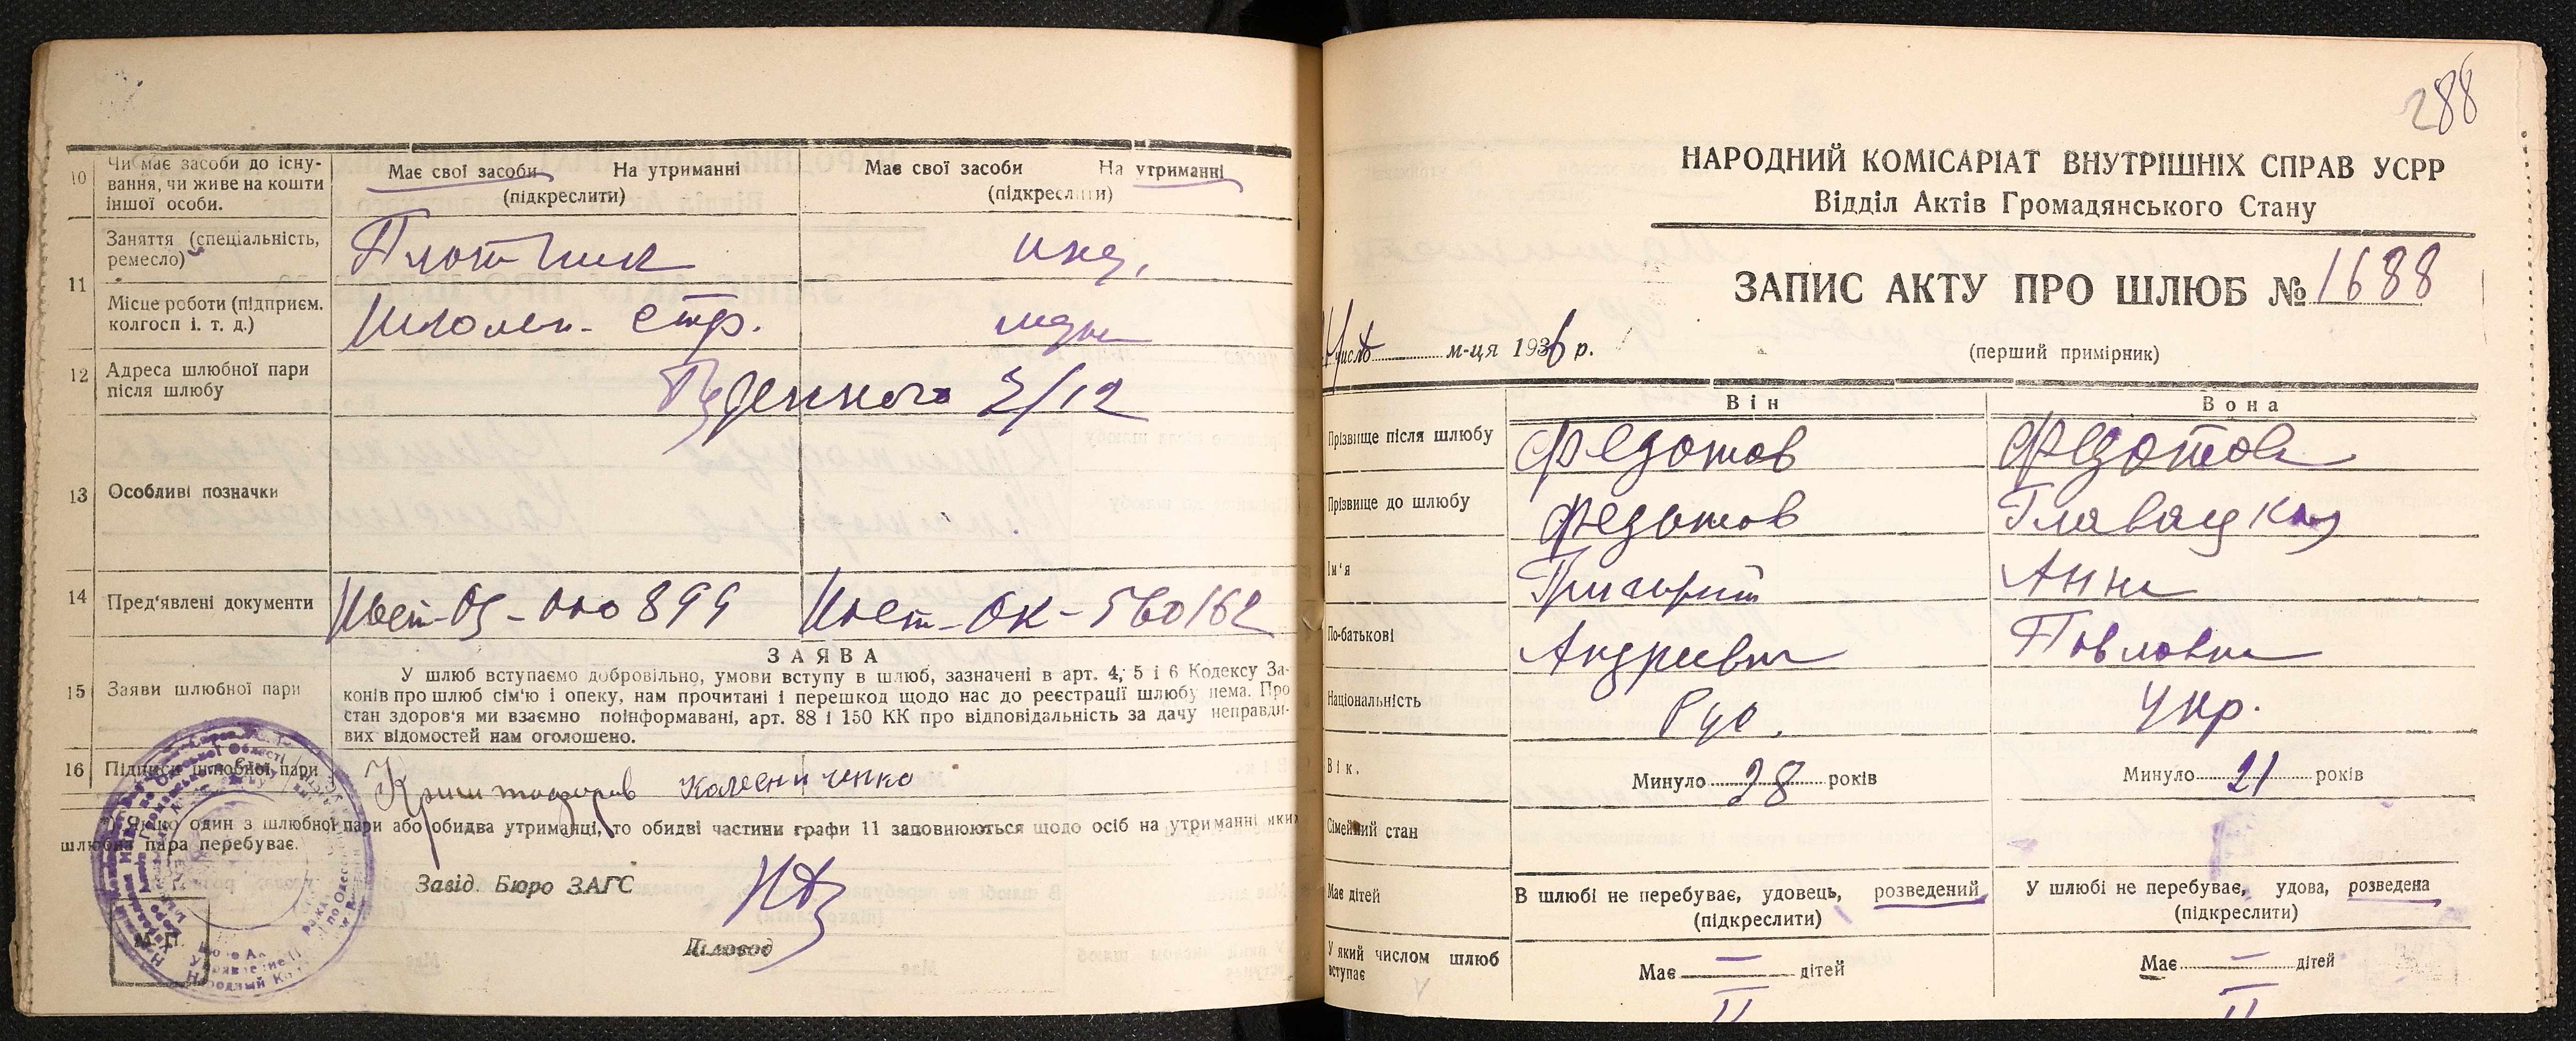 10 Чи має засоби до існу-
вання, чи живе на кошти
іншої особи.
Має свої засоби На утриманні
(підкреслити)
Має свої засоби На утриманні
(підкреслити)
11 Заняття (спеціальність,
ремесло)
Плотник
ижд.
Місце роботи (підприєм.
колгосп і. т. д.)
стр.
мужа
12 Адреса шлюбної пари
після шлюбу
Буденного 3/12
13 Особливі позначки
14 Пред'явлені документи
899
ОК - 560162
15 Заяви шлюбної пари
ЗАЯВА
У шлюб вступаємо добровільно, умови вступу в шлюб, зазначені в арт. 4, 5 і 6 Кодексу За-
конів про шлюб сім'ю і опеку, нам прочитані і перешкод щодо нас до реєстрації шлюбу нема. Про
стан здоров'я ми взаємно поінформавані, арт. 88 і 150 КК про відповідальність за дачу неправди-
вих відомостей нам оголошено.
16 Підписи шлюбної пари
Колесниченко
Якщо один з шлюбної пари або обидва утриманці, то обидві частини графи 11 заповнюються щодо осіб на утриманні яких
шлюбна пара перебуває.
Завід. Бюро ЗАГС
Діловод
М. П.
288
НАРОДНИЙ КОМІСАРІАТ ВНУТРІШНІХ СПРАВ УСРР
Відділ Актів Громадянського Стану
ЗАПИС АКТУ ПРО ШЛЮБ № 1688
число м-ця 1936 р.
(перший примірник)
Він Вона
Прізвище після шлюбу Федотов Федотова
Прізвище до шлюбу Федотов Главацкая
Ім'я Григорий Анна
По-батькові Андреевич Павловна
Національність Рус. Укр.
Вік. Минуло 28 років Минуло 21 років
Сімейний стан
Має дітей В шлюбі не перебуває, удовець, розведений У шлюбі не перебуває, удова, розведена
(підкреслити) (підкреслити)
У який числом шлюб
вступає
Має — дітей Має — дітей
II II